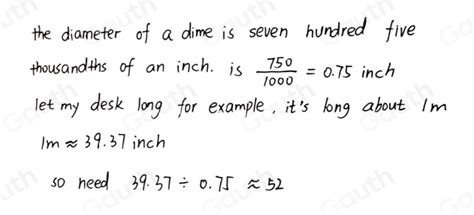 the diameter of a dime is seven hundred five
thousandths of an inch. is 750/1000 = 0.75 inch
let my desk long for example, it's long about 1m
1m ≈ 39.37 inch
so need 39.37 ÷ 0.75 ≈ 52